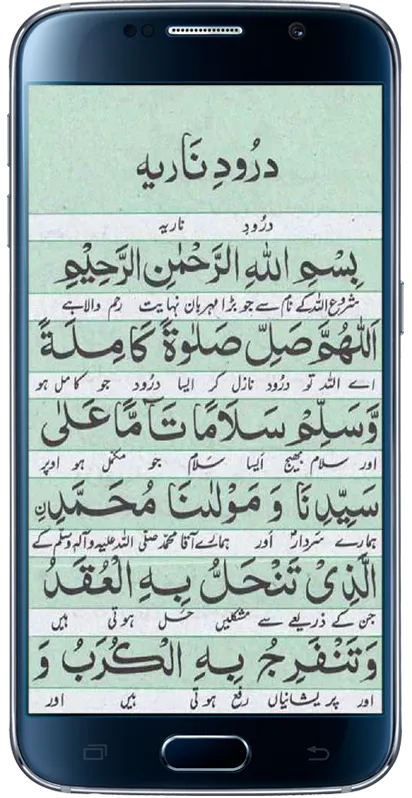 درُودِ نَاریہ
درُودِ ناریہ
بِسْمِ اللهِ الرَّحْمٰنِ الرَّحِيْمِ
شروع اللہ کے نام سے جو بڑا مہربان نہایت رحم والا ہے
اَللّٰهُمَّ صَلِّ صَلٰوةً كَامِلَةً
اے اللہ تو درُود نازل کر ایسا درُود جو کامل ہو
وَّسَلِّمْ سَلَامًا تَآمًّا عَلٰى
اور سلام بھیج ایسا سَلام جو مکمل ہو اوپر
سَيِّدِنَا وَ مَوْلٰنَا مُحَمَّدِنِ
ہمارے سَردار اور ہمارے آقا محمد صلی اللہ علیہ وآلہ وسلم کے
الَّذِىْ تَنْحَلُّ بِهِ الْعُقَدُ
جن کے ذریعے سے مشکلیں حَل ہوتی ہیں
وَتَنْفَرِجُ بِهِ الْكُرَبُ وَ
اور پریشانیاں رفع ہوتی ہیں اور